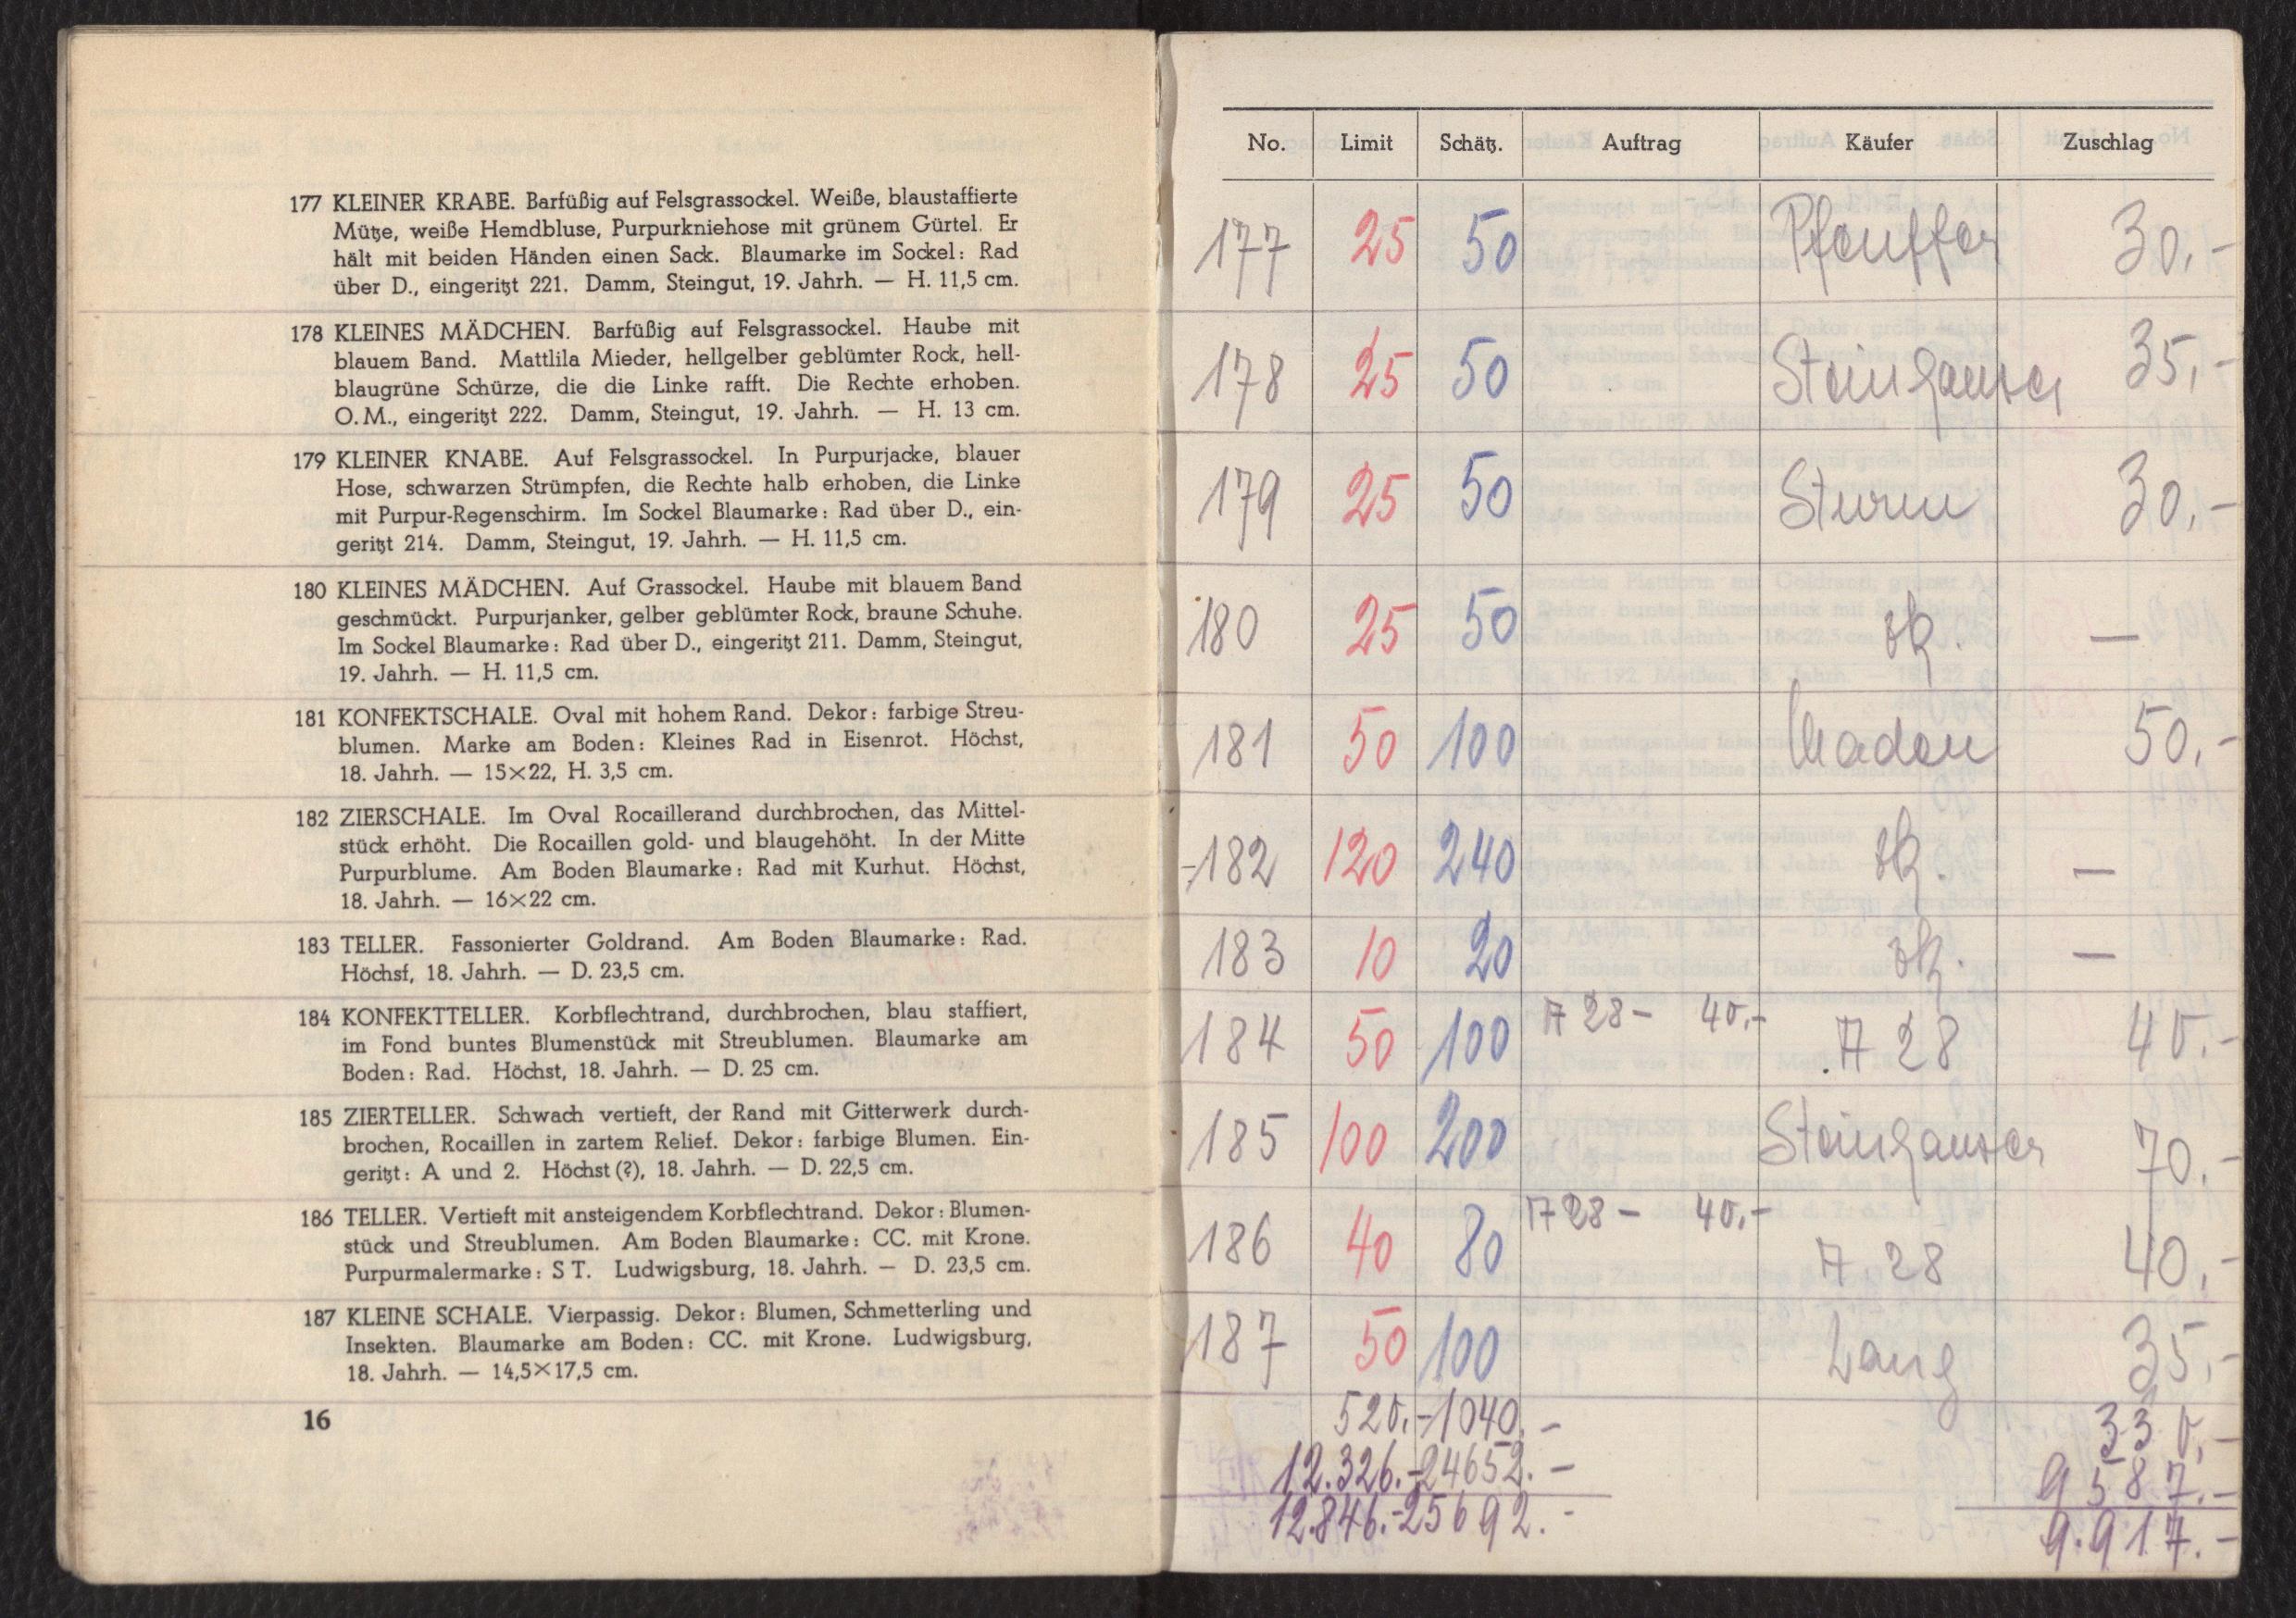 177 KLEINER KRABE. Barfüßig auf Felsgrassockel. Weiße, blaustaffierte
Mütze, weiße Hemdbluse, Purpurkniehose mit grünem Gürtel. Er
hält mit beiden Händen einen Sack. Blaumarke im Sockel: Rad
über D., eingeritzt 221. Damm, Steingut, 19. Jahrh. — H. 11,5 cm.
178 KLEINES MÄDCHEN. Barfüßig auf Felsgrassockel. Haube mit
blauem Band. Mattlila Mieder, hellgelber geblümter Rock, hell-
blaugrüne Schürze, die die Linke rafft. Die Rechte erhoben.
O. M., eingeritzt 222. Damm, Steingut, 19. Jahrh. — H. 13 cm.
179 KLEINER KNABE. Auf Felsgrassockel. In Purpurjacke, blauer
Hose, schwarzen Strümpfen, die Rechte halb erhoben, die Linke
mit Purpur-Regenschirm. Im Sockel Blaumarke: Rad über D., ein-
geritzt 214. Damm, Steingut, 19. Jahrh. — H. 11,5 cm.
180 KLEINES MÄDCHEN. Auf Grassockel. Haube mit blauem Band
geschmückt. Purpurjanker, gelber geblümter Rock, braune Schuhe.
Im Sockel Blaumarke: Rad über D., eingeritzt 211. Damm, Steingut,
19. Jahrh. — H. 11,5 cm.
181 KONFEKTSCHALE. Oval mit hohem Rand. Dekor: farbige Streu-
blumen. Marke am Boden: Kleines Rad in Eisenrot. Höchst,
18. Jahrh. — 15×22, H. 3,5 cm.
182 ZIERSCHALE. Im Oval Rocaillerand durchbrochen, das Mittel-
stück erhöht. Die Rocaillen gold- und blaugehöht. In der Mitte
Purpurblume. Am Boden Blaumarke: Rad mit Kurhut. Höchst,
18. Jahrh. — 16×22 cm.
183 TELLER. Fassonierter Goldrand. Am Boden Blaumarke: Rad.
Höchsf, 18. Jahrh. — D. 23,5 cm.
184 KONFEKTTELLER. Korbflechtrand, durchbrochen, blau staffiert,
im Fond buntes Blumenstück mit Streublumen. Blaumarke am
Boden: Rad. Höchst, 18. Jahrh. — D. 25 cm.
185 ZIERTELLER. Schwach vertieft, der Rand mit Gitterwerk durch-
brochen, Rocaillen in zartem Relief. Dekor: farbige Blumen. Ein-
geritzt: A und 2. Höchst (?), 18. Jahrh. — D. 22,5 cm.
186 TELLER. Vertieft mit ansteigendem Korbflechtrand. Dekor: Blumen-
stück und Streublumen. Am Boden Blaumarke: CC. mit Krone.
Purpurmalermarke: S T. Ludwigsburg, 18. Jahrh. — D. 23,5 cm.
187 KLEINE SCHALE. Vierpassig. Dekor: Blumen, Schmetterling und
Insekten. Blaumarke am Boden: CC. mit Krone. Ludwigsburg,
18. Jahrh. — 14,5×17,5 cm.
16
No. Limit Schätz. Auftrag Käufer Zuschlag
177 25 50 Pfeuffer 30.-
178 25 50 Steinhauser 35,-
179 25 50 Sturm 30,-
180 25 50 —
181 50 100 50,-
-182 120 240 —
183 10 20 —
184 50 100 A 28 - 40.- A 28 40.-
185 100 200 Steinhauser 70.-
186 40 80 A 28 - 40.- A 28 40,-
187 50 100 Lang 35,-
520.- 1040.- 330,-
12.326.- 24652.- 9587.-
12.846.- 25692.- 9.917.-